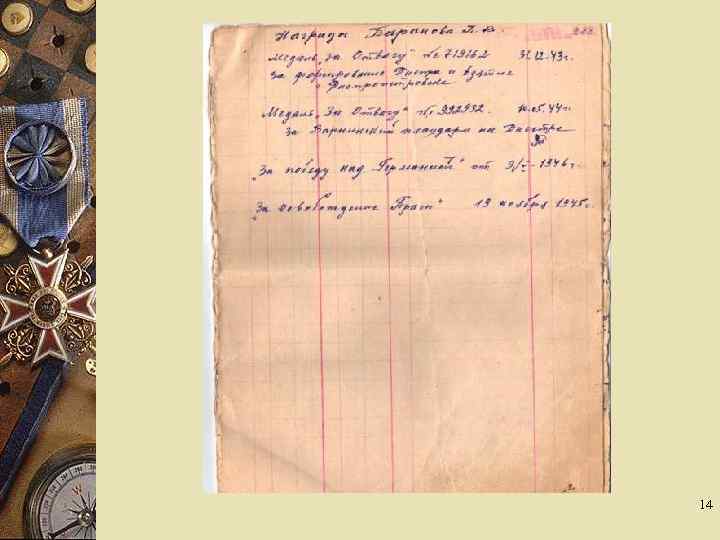 Награды Баранова П. В.
Медаль „За Отвагу" № 719162 31.12.43 г.
За форсирование Днепра и взятие
г. Днепропетровска
Медаль „За Отвагу" № 992932 10.05.44 г.
За плацдарм на Днестре
„За победу над Германией" от 1946 г.
„За освобождение Праги" 19 ноября 1945 г.
14